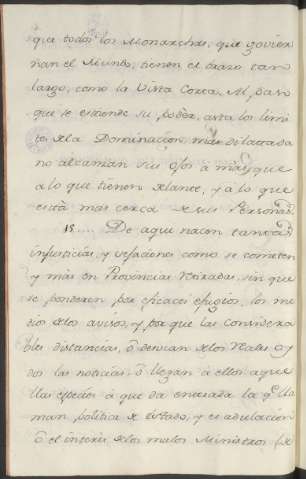 que todos los Monarchas, que govier
nan el Mundo, tienen el brazo tan
largo, como la Vista corta. Al paso
que se estiende su poder, asta los limi
tes de la Dominacion mas dilatada
no alcanzan sus ojos à mas, que
a lo que tienen delante, y à lo que
està mas cerca de sus Personas.
15.... De aqui nacen tantas
injusticias, y vejaciones como se cometen
y mas en Provincias Retiradas, sin que
se ponderen por eficaces los me
dios de los avisos, y por que las considera
bles distancias, ò desvian de los Reales oy
dos las noticias, ò llegan à ellos aque
llas especies à que da entrada la q.e lla
man politica de Estado, y es adulacion
ò el interès de los malos Ministros